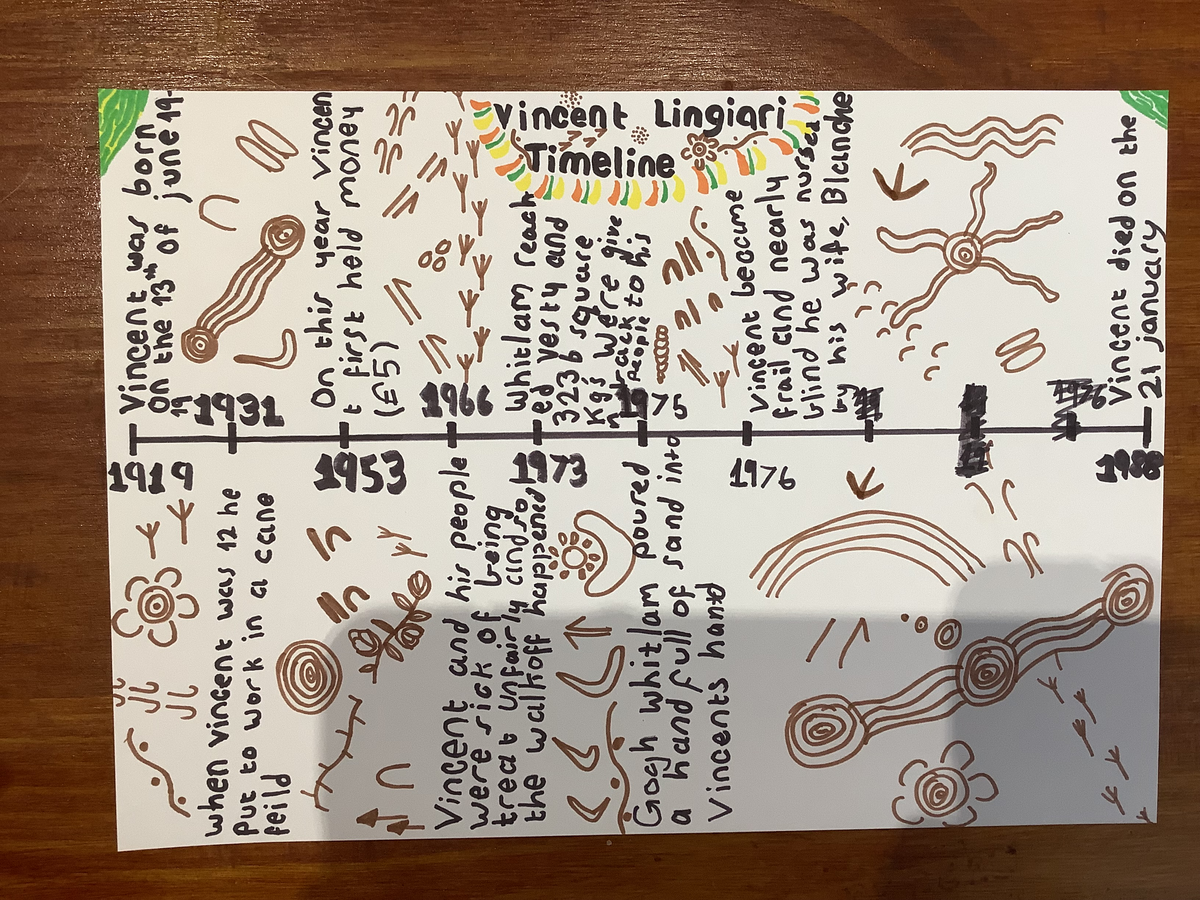 Vincent Lingiari
Timeline
Vincent was born
On the 13th of june 19-
19
1919
1931
when vincent was 12 he
put to work in a cane
feild
On this year vincen
t first held money
(£5)
1953
1966
Vincent and his people
were sick of being
treat unfairly and so
the walkoff happened
Whitlam reach
ed vesty and
323 6 square
Kg's were give
n back to his
People
1973
1975
Gogh whitlam poured
a hand full of sand into
Vincents hand
Vincent became
frail and nearly
blind he was nursed
by his wife, Blanche
1976
Vincent died on the
21 january
1988